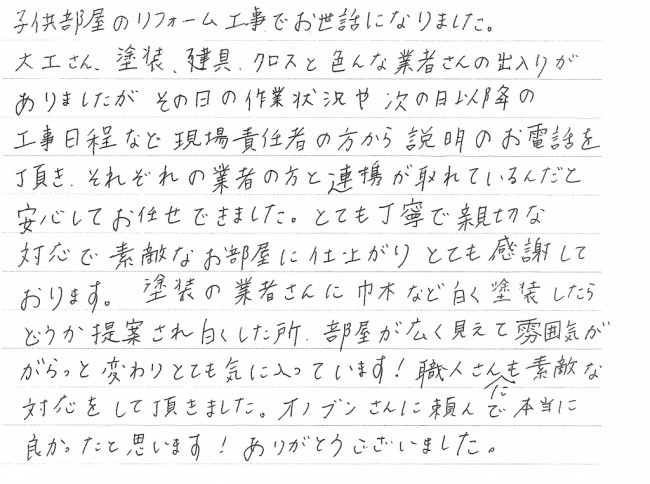 子供部屋のリフォーム工事でお世話になりました。
大工さん、塗装、建具、クロスと色んな業者さんの出入りが
ありましたが その日の作業状況や 次の日以降の
工事日程など 現場責任者の方から 説明のお電話を
頂き、それぞれの業者の方と連携が取れているんだと
安心してお任せできました。とても丁寧で親切な
対応で 素敵なお部屋に仕上がり とても 感謝して
おります。 塗装の業者さんに 巾木など白く塗装したら
どうか提案され白くした所、部屋が広く見えて雰囲気が
がらっと変わりとても気に入っています！職人さんも素敵な
対応をして頂きました。オノブンさんに頼んだで本当に
良かったと思います！ありがとうございました。